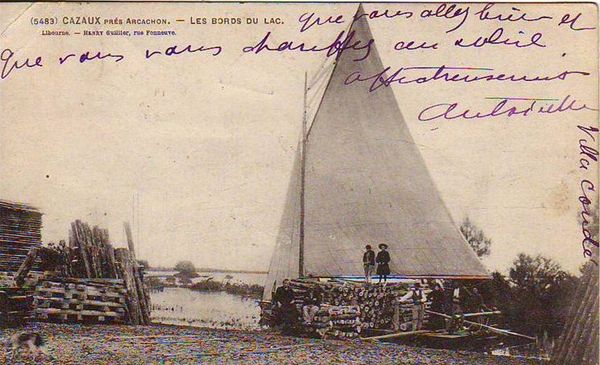 (5483) CAZAUX PRÈS ARCACHON. — LES BORDS DU LAC.
Libourne. — HENRY Guillier, rue Fonneuve.
que vous allez bien et
que vous vous chauffez au soleil.
affectueusement
Antoinette
Villa